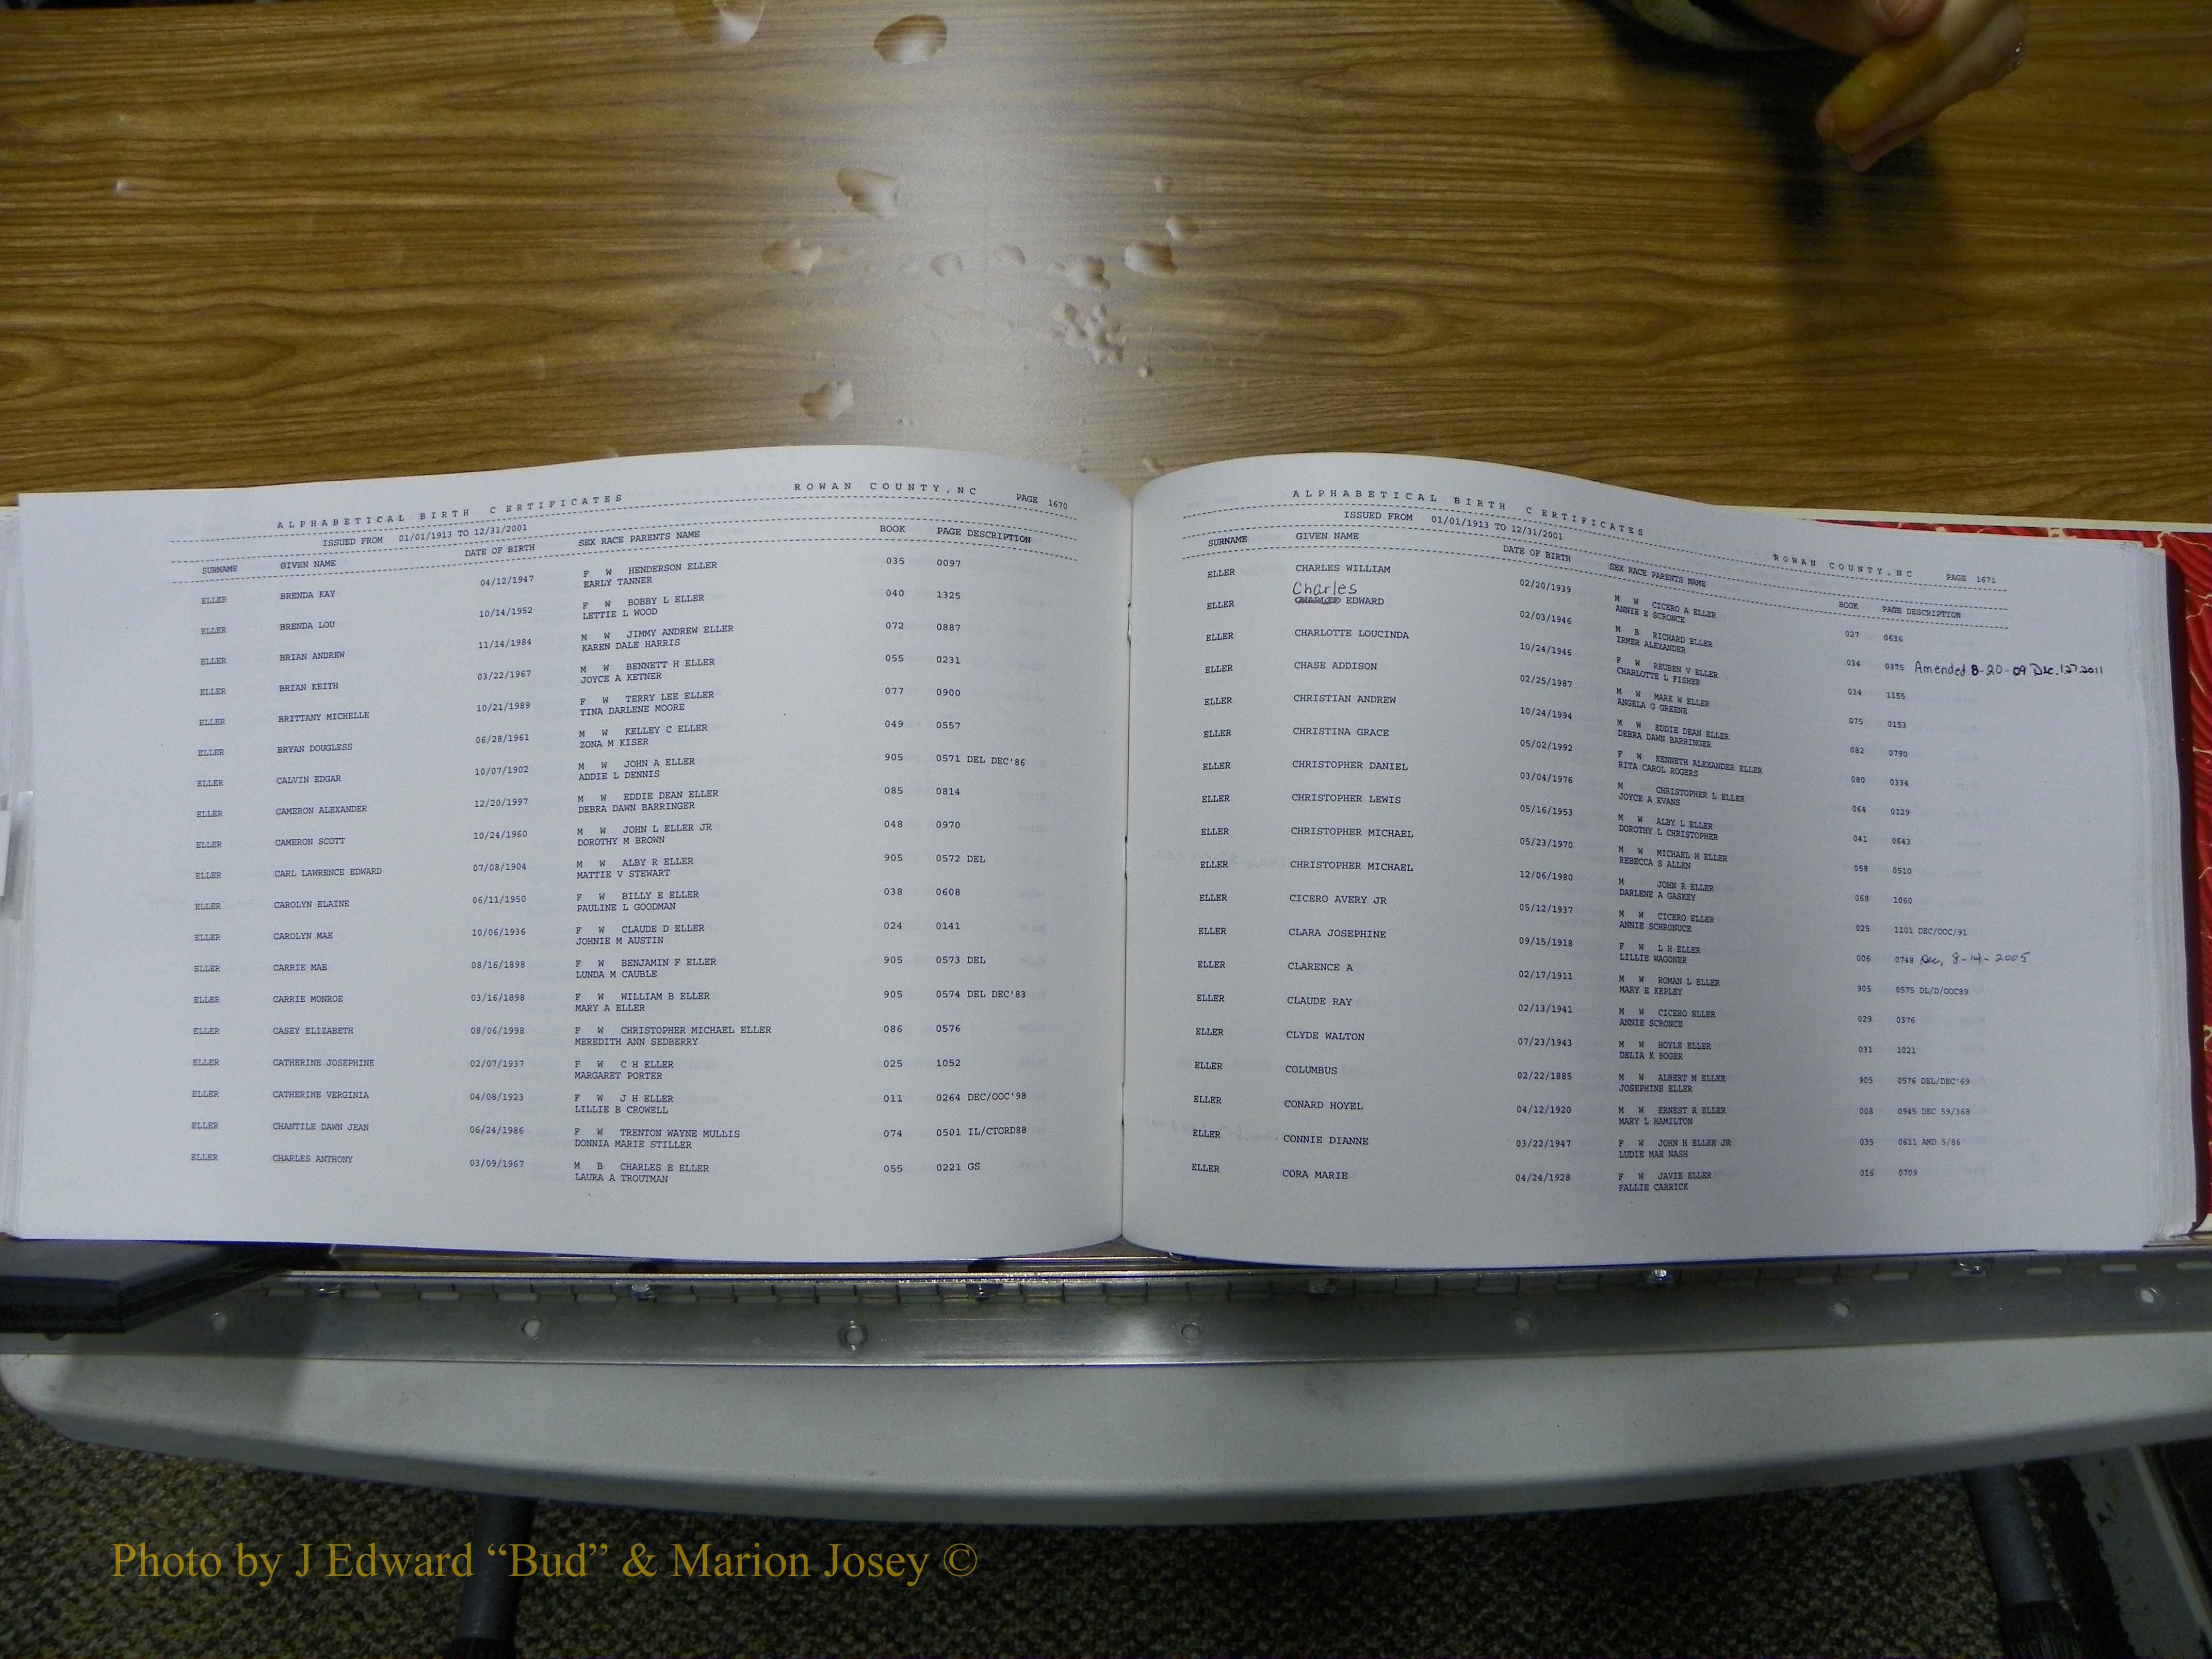 ALPHABETICAL BIRTH CERTIFICATES ROWAN COUNTY, NC PAGE 1670
ISSUED FROM 01/01/1913 TO 12/31/2001
SURNAME GIVEN NAME DATE OF BIRTH SEX RACE PARENTS NAME BOOK PAGE DESCRIPTION
ELLER BRENDA KAY 04/12/1947 F W HENDERSON ELLER 035 0097
EARLY TANNER
ELLER BRENDA LOU 10/14/1952 F W BOBBY L ELLER 040 1325
LETTIE L WOOD
ELLER BRIAN ANDREW 11/14/1984 M W JIMMY ANDREW ELLER 072 0887
KAREN DALE HARRIS
ELLER BRIAN KEITH 03/22/1967 M W BENNETT H ELLER 055 0231
JOYCE A KETNER
ELLER BRITTANY MICHELLE 10/21/1989 F W TERRY LEE ELLER 077 0900
TINA DARLENE MOORE
ELLER BRYAN DOUGLESS 06/28/1961 M W KELLEY C ELLER 049 0557
ZONA M KISER
ELLER CALVIN EDGAR 10/07/1902 M W JOHN A ELLER 905 0571 DEL DEC'86
ADDIE L DENNIS
ELLER CAMERON ALEXANDER 12/20/1997 M W EDDIE DEAN ELLER 085 0814
DEBRA DAWN BARRINGER
ELLER CAMERON SCOTT 10/24/1960 M W JOHN L ELLER JR 048 0970
DOROTHY M BROWN
ELLER CARL LAWRENCE EDWARD 07/08/1904 M W ALBY R ELLER 905 0572 DEL
MATTIE V STEWART
ELLER CAROLYN ELAINE 06/11/1950 F W BILLY E ELLER 038 0608
PAULINE L GOODMAN
ELLER CAROLYN MAE 10/06/1936 F W CLAUDE D ELLER 024 0141
JOHNIE M AUSTIN
ELLER CARRIE MAE 08/16/1898 F W BENJAMIN F ELLER 905 0573 DEL
LUNDA M CAUBLE
ELLER CARRIE MONROE 03/16/1898 F W WILLIAM B ELLER 905 0574 DEL DEC'83
MARY A ELLER
ELLER CASEY ELIZABETH 08/06/1998 F W CHRISTOPHER MICHAEL ELLER 086 0576
MEREDITH ANN SEDBERRY
ELLER CATHERINE JOSEPHINE 02/07/1937 F W C H ELLER 025 1052
MARGARET PORTER
ELLER CATHERINE VERGINIA 04/08/1923 F W J H ELLER 011 0264 DEC/OOC'98
LILLIE B CROWELL
ELLER CHANTILE DAWN JEAN 06/24/1986 F W TRENTON WAYNE MULLIS 074 0501 IL/CTORD88
DONNIA MARIE STILLER
ELLER CHARLES ANTHONY 03/09/1967 M B CHARLES E ELLER 055 0221 GS
LAURA A TROUTMAN
ALPHABETICAL BIRTH CERTIFICATES ROWAN COUNTY, NC PAGE 1671
ISSUED FROM 01/01/1913 TO 12/31/2001
SURNAME GIVEN NAME DATE OF BIRTH SEX RACE PARENTS NAME BOOK PAGE DESCRIPTION
ELLER CHARLES WILLIAM 02/20/1939 M W CICERO A ELLER 027 0636
ANNIE E SCRONCE
Charles
ELLER EDWARD 02/03/1946 M B RICHARD ELLER 034 0375 Amended 8-20-09 Dec.
IRMER ALEXANDER
ELLER CHARLOTTE LOUCINDA 10/24/1946 F W REUBEN V ELLER 034 1155
CHARLOTTE L FISHER
ELLER CHASE ADDISON 02/25/1987 M W MARK W ELLER 075 0153
ANGELA G GREENE
ELLER CHRISTIAN ANDREW 10/24/1994 M W EDDIE DEAN ELLER 082 0790
DEBRA DAWN BARRINGER
ELLER CHRISTINA GRACE 05/02/1992 F W KENNETH ALEXANDER ELLER 080 0334
RITA CAROL ROGERS
ELLER CHRISTOPHER DANIEL 03/04/1976 M CHRISTOPHER L ELLER 064 0129
JOYCE A EVANS
ELLER CHRISTOPHER LEWIS 05/16/1953 M W ALBY L ELLER 041 0643
DOROTHY L CHRISTOPHER
ELLER CHRISTOPHER MICHAEL 05/23/1970 M W MICHAEL H ELLER 058 0510
REBECCA S ALLEN
ELLER CHRISTOPHER MICHAEL 12/06/1980 M JOHN R ELLER 068 1060
DARLENE A GASKEY
ELLER CICERO AVERY JR 05/12/1937 M W CICERO ELLER 025 1101 DEC/OOC/91
ANNIE SCHRONUCE
ELLER CLARA JOSEPHINE 09/15/1918 F W L H ELLER 006 0748 Dec, 8-14-2005
LILLIE WAGONER
ELLER CLARENCE A 02/17/1911 M W ROMAN L ELLER 905 0575 DL/D/OOC89
MARY E KEPLEY
ELLER CLAUDE RAY 02/13/1941 M W CICERO ELLER 029 0376
ANNIE SCRONCE
ELLER CLYDE WALTON 07/23/1943 M W HOYLE ELLER 031 1021
DELIA K BOGER
ELLER COLUMBUS 02/22/1885 M W ALBERT M ELLER 905 0576 DEL/DEC'69
JOSEPHINE ELLER
ELLER CONARD HOYEL 04/12/1920 M W ERNEST R ELLER 008 0945 DEC 59/368
MARY L HAMILTON
ELLER CONNIE DIANNE 03/22/1947 F W JOHN H ELLER JR 035 0611 AMD 5/86
LUDIE MAE NASH
ELLER CORA MARIE 04/24/1928 F W JAVIE ELLER 016 0709
FALLIE CARRICK
Photo by J Edward “Bud” & Marion Josey ©